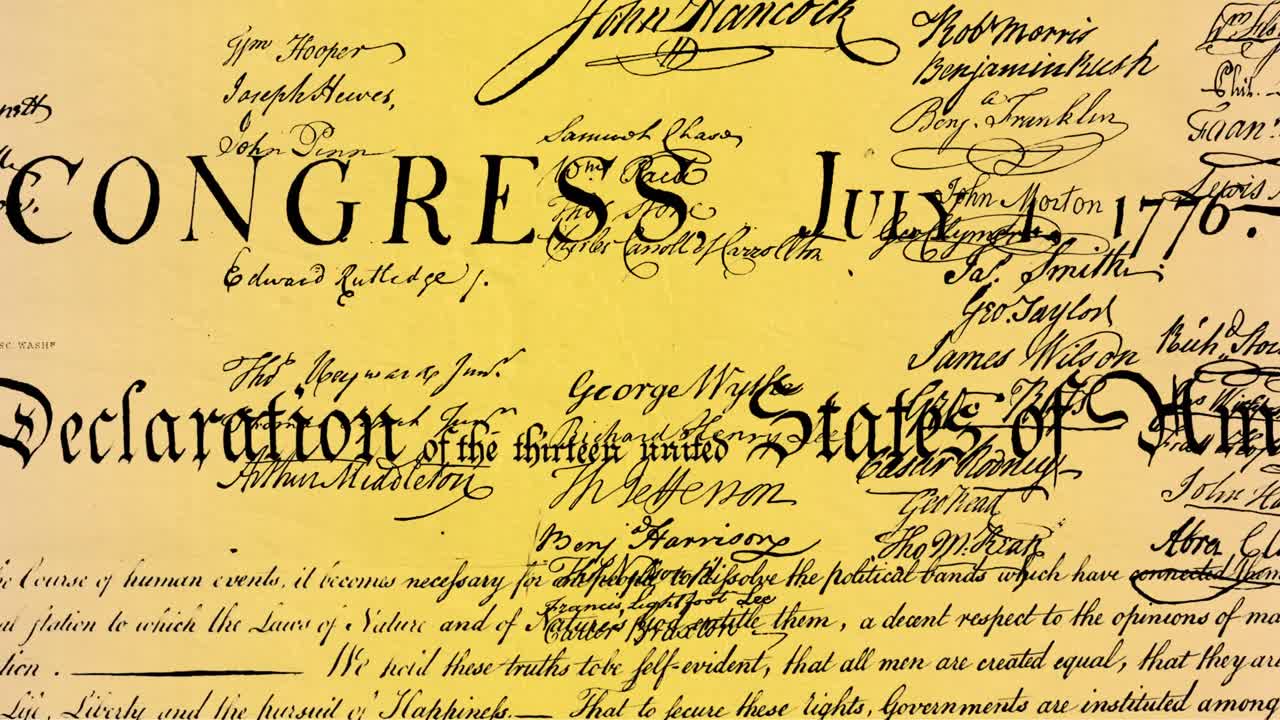 Wm Hooper
Joseph Hewes,
John Penn
Edward Rutledge /.
Thos Heyward Junr.
Arthur Middleton
John Hancock
Samuel Chase
Wm. Paca
Thos. Stone
Charles Carroll of Carrollton
George Wythe
Richard Henry Lee
Th Jefferson
Benj Harrison
Francis Lightfoot Lee
Carter Braxton
Robt Morris
Benjamin Rush
Benj. Franklin
John Morton
Geo Clymer
Jas. Smith
Geo. Taylor
James Wilson
Geo. Ross
Caesar Rodney
Geo Read
Tho M. Kean
Phil.
Lewis
Richd. Stock
John Ha
Abra Cl
CONGRESS, July 4, 1776.
SC. WASHN
Declaration of the thirteen united States of Am
Course of human events, it becomes necessary for one people to dissolve the political bands which have connected them
station to which the Laws of Nature and of Nature's God entitle them, a decent respect to the opinions of ma
tion. We hold these truths to be self-evident, that all men are created equal, that they are
Life, Liberty and the pursuit of Happiness.— That to secure these rights, Governments are instituted among